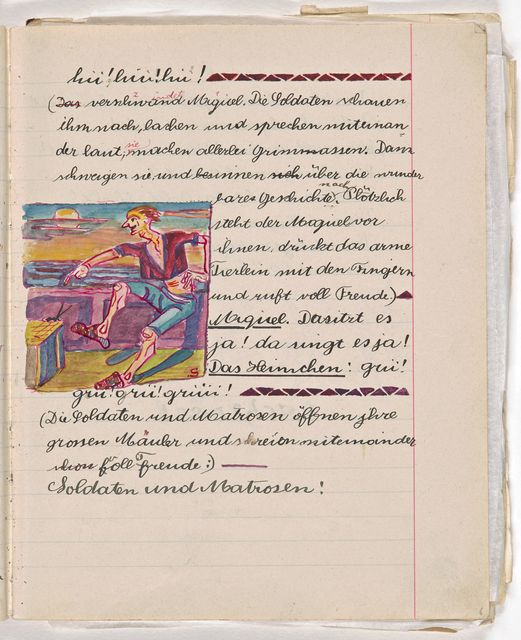 hii! hii! hii!
(Das verschwindet Miquel. Die Soldaten schauen
ihm nach, lachen und sprechen miteinan
der laut, sie machen allerlei Grimmassen. Dann
schweigen sie und besinnen sich über die wunder
bare Geschichte nach, Plötzlich
steht der Miquel vor
ihnen, drückt das arme
Tierlein mit den Fingern
und ruft voll Freude)
Miquel. Da sitzt es
ja! da singt es ja!
Das Heimchen! grii!
grii! grii! griiii!
(Die Soldaten und Matrosen öffnen jhre
grossen Mäuler und schreien miteinander
schon foll Freude:)
Soldaten und Matrosen!